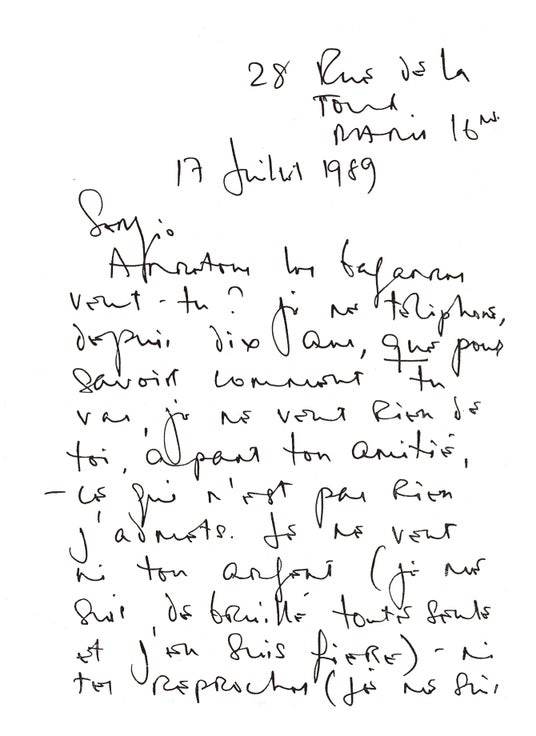 28 Rue de la
Tour
PARIS 16
17 Juillet 1989
Sergio
Arretons les bagarres
veut-tu? je ne téléphone,
depuis dix ans, que pour
savoir comment tu
vas, je ne veut Rien de
toi, apart ton amitié,
- ce qui n'est pas Rien
j'admets. Je ne veut
ni ton argent (je me
suis débrouillé toute seule
et j'en suis fiere) - ni
tes Reproches (je ne suis